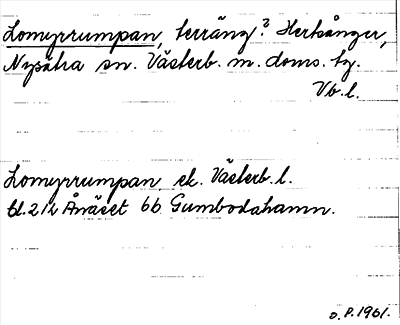 Lomyrrumpan, terräng? Hertsånger,
Nysätra sn. Västerb. m. doms. tg.
Vb. l.
Lomyrrumpan ek. Västerb. l.
bl. 212 Ånäset 6b Gumbodahamn.
O. P. 1961.